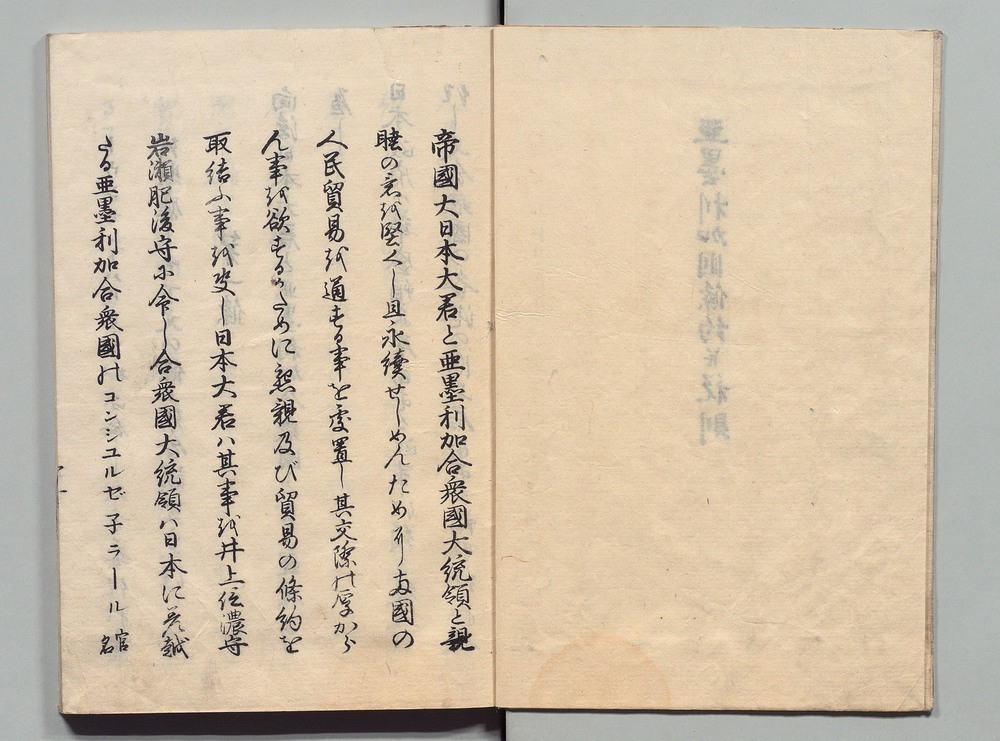 帝國大日本大君と亜墨利加合衆國大統領と親
睦の意を堅くし且永續せしめんために両國の
人民貿易を通する事を處置し其交際の厚から
ん事を欲するかために懇親及び貿易の條約を
取結ふ事を決し日本大君ハ其事を井上信濃守
岩瀬肥後守に令し合衆國大統領ハ日本に差越
たる亜墨利加合衆國のコンシユルゼ子ラール官名